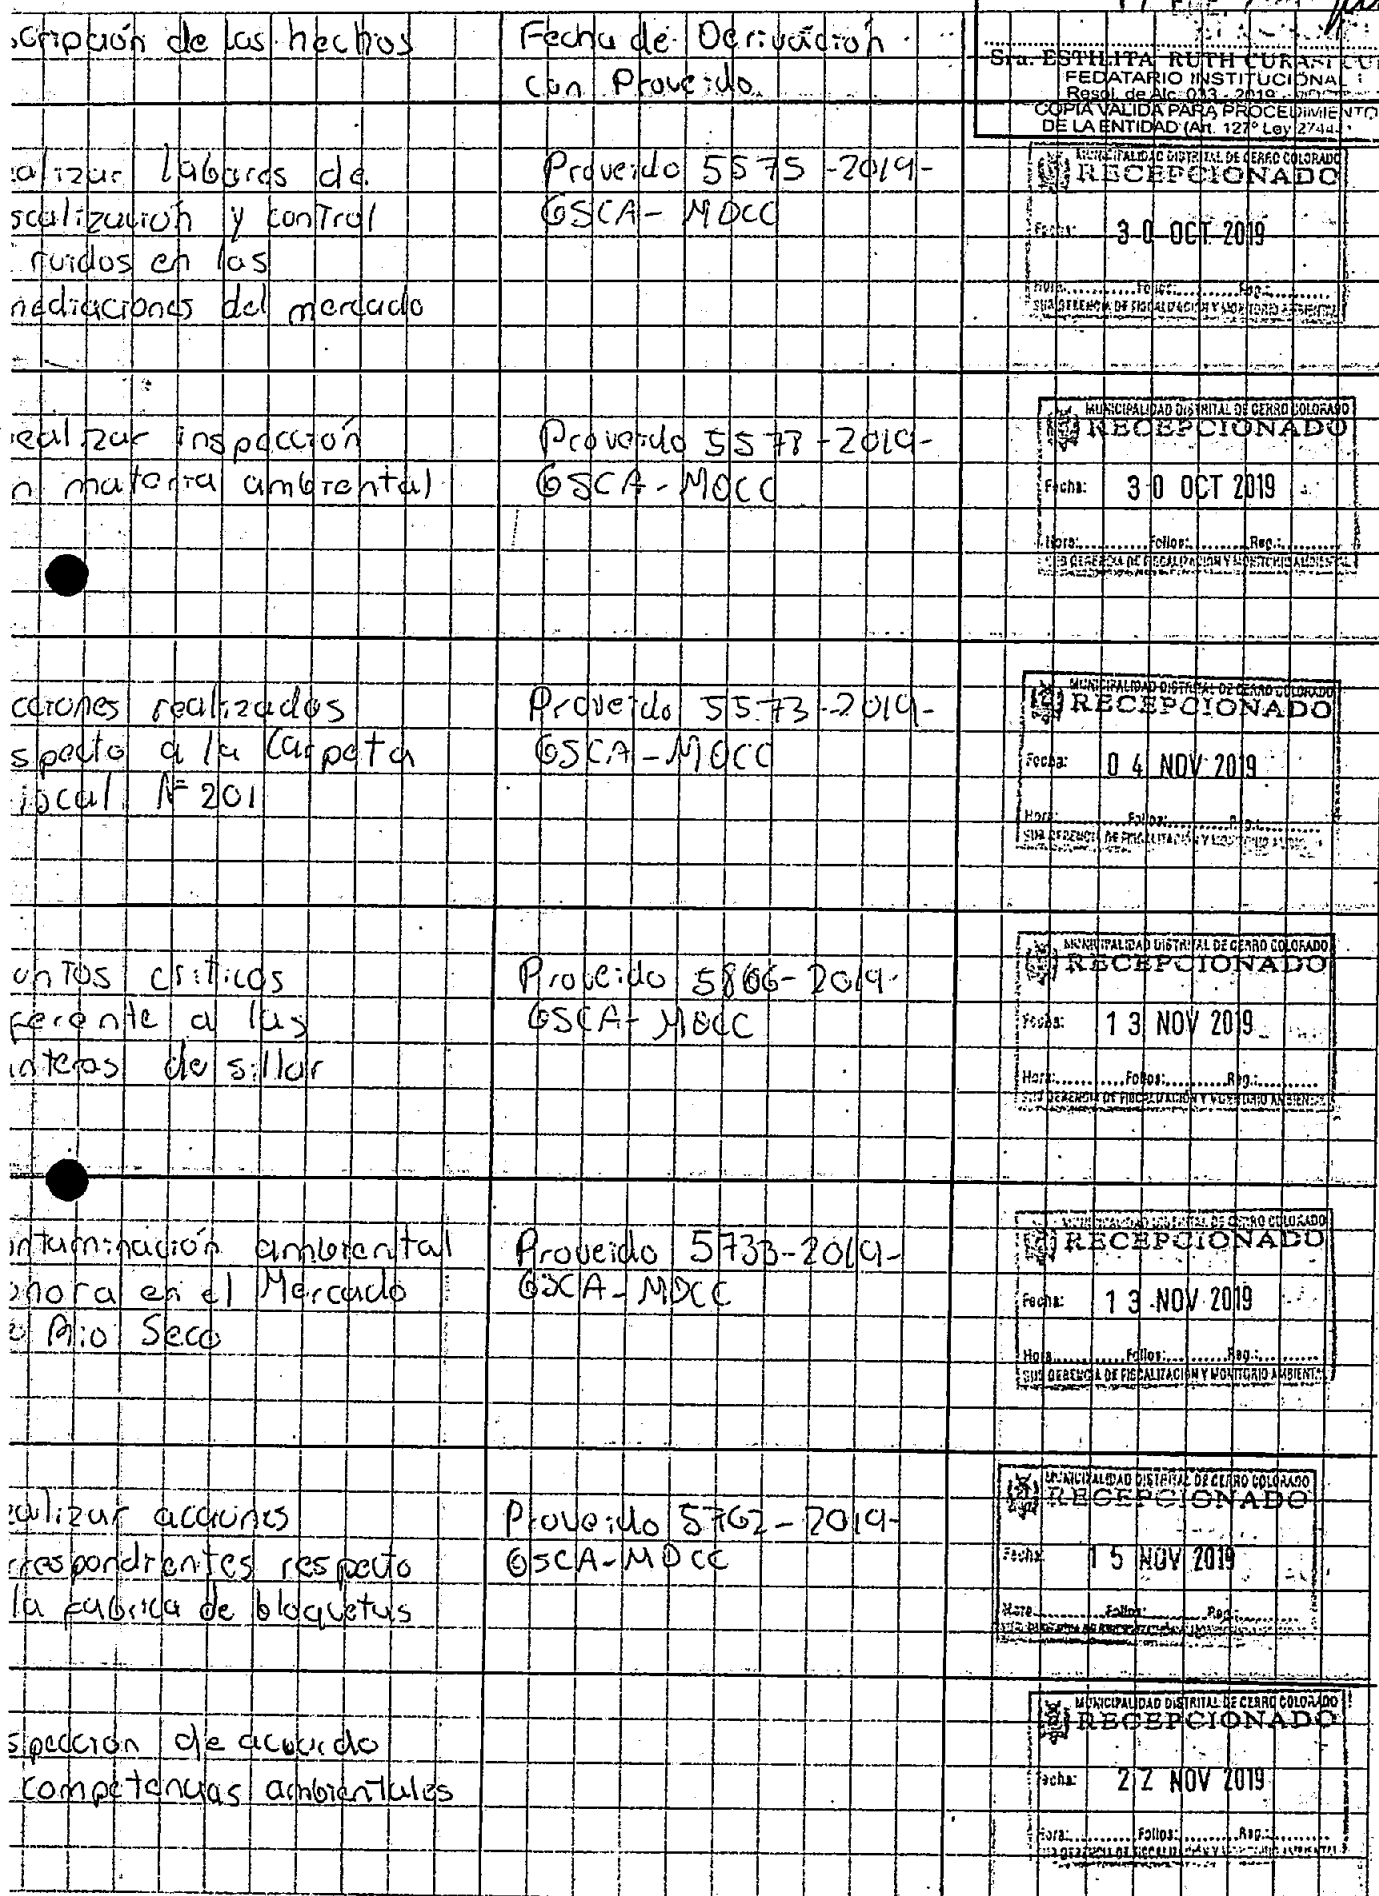 scripción de los hechos
Fecha de Derivación
con Proveido.
Sra. ESTILITA RUTH
FEDATARIO INSTITUCIONAL
Resol. de Alc. 033 - 2019
COPIA VALIDA PARA PROCEDIMIENTO
DE LA ENTIDAD (Art. 127° Ley 2744
alizar labores de
scalización y control
ruidos en las
mediaciones del mercado
Proveido 5575-2019-
GSCA-MDCC
MUNICIPALIDAD DISTRITAL DE CERRO COLORADO
RECEPCIONADO
Fecha: 30 OCT 2019
Hora:..........Folios:..........Reg.:..........
SUB GERENCIA DE FISCALIZACIÓN Y MONITOREO AMBIENTAL
realizar inspección
n materia ambiental
Proveido 5578-2019-
GSCA-MDCC
MUNICIPALIDAD DISTRITAL DE CERRO COLORADO
RECEPCIONADO
Fecha: 30 OCT 2019
Hora:..........Folios:..........Reg.:..........
SUB GERENCIA DE FISCALIZACIÓN Y MONITOREO AMBIENTAL
cciones realizados
specto a la Carpeta
iscal N° 201
Proveido 5573-2019-
GSCA-MDCC
MUNICIPALIDAD DISTRITAL DE CERRO COLORADO
RECEPCIONADO
Fecha: 04 NOV 2019
Hora:..........Folios:..........Reg.:..........
SUB GERENCIA DE FISCALIZACIÓN Y MONITOREO
untos criticos
ferente a las
anteras de sillar
Proveido 5806-2019-
GSCA-MDCC
MUNICIPALIDAD DISTRITAL DE CERRO COLORADO
RECEPCIONADO
Fecha: 13 NOV 2019
Hora:..........Folios:..........Reg.:..........
SUB GERENCIA DE FISCALIZACIÓN Y MONITOREO AMBIENTAL
ntaminación ambiental
onora en el Mercado
e Rio Seco
Proveido 5733-2019-
GSCA-MDCC
MUNICIPALIDAD DISTRITAL DE CERRO COLORADO
RECEPCIONADO
Fecha: 13 NOV 2019
Hora:..........Folios:..........Reg.:..........
SUB GERENCIA DE FISCALIZACIÓN Y MONITOREO AMBIENTAL
ealizar acciones
rrespondientes respecto
la fabrica de bloquetas
Proveido 5762-2019-
GSCA-MDCC
MUNICIPALIDAD DISTRITAL DE CERRO COLORADO
RECEPCIONADO
Fecha: 15 NOV 2019
Hora..........Folios:..........Reg.:..........
spección de acuerdo
competencias ambientales
MUNICIPALIDAD DISTRITAL DE CERRO COLORADO
RECEPCIONADO
Fecha: 22 NOV 2019
Hora:..........Folios:..........Reg.:..........
SUB GERENCIA DE FISCALIZACIÓN Y MONITOREO AMBIENTAL